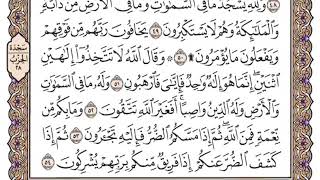 ٤٨ وَلِلَّهِ يَسْجُدُ مَا فِي السَّمَوَاتِ وَمَا فِي الْأَرْضِ مِن دَابَّةٍ
وَالْمَلَٰٓئِكَةُ وَهُمْ لَا يَسْتَكْبِرُونَ ٤٩ يَخَافُونَ رَبَّهُم مِّن فَوْقِهِمْ
وَيَفْعَلُونَ مَا يُؤْمَرُونَ ۩ ٥٠ وَقَالَ اللَّهُ لَا تَتَّخِذُوا إِلَٰهَيْنِ
سَجْدَة
الحِزْبُ
٢٨
اثْنَيْنِ إِنَّمَا هُوَ إِلَٰهٌ وَٰحِدٌ فَإِيَّٰىَ فَارْهَبُونِ ٥١ وَلَهُ مَا فِي السَّمَٰوَٰتِ
وَالْأَرْضِ وَلَهُ الدِّينُ وَاصِبًا أَفَغَيْرَ اللَّهِ تَتَّقُونَ ٥٢ وَمَا بِكُم مِّن
نِّعْمَةٍ فَمِنَ اللَّهِ ثُمَّ إِذَا مَسَّكُمُ الضُّرُّ فَإِلَيْهِ تَجْـَٔرُونَ ٥٣ ثُمَّ إِذَا
كَشَفَ الضُّرَّ عَنكُمْ إِذَا فَرِيقٌ مِّنكُم بِرَبِّهِمْ يُشْرِكُونَ ٥٤